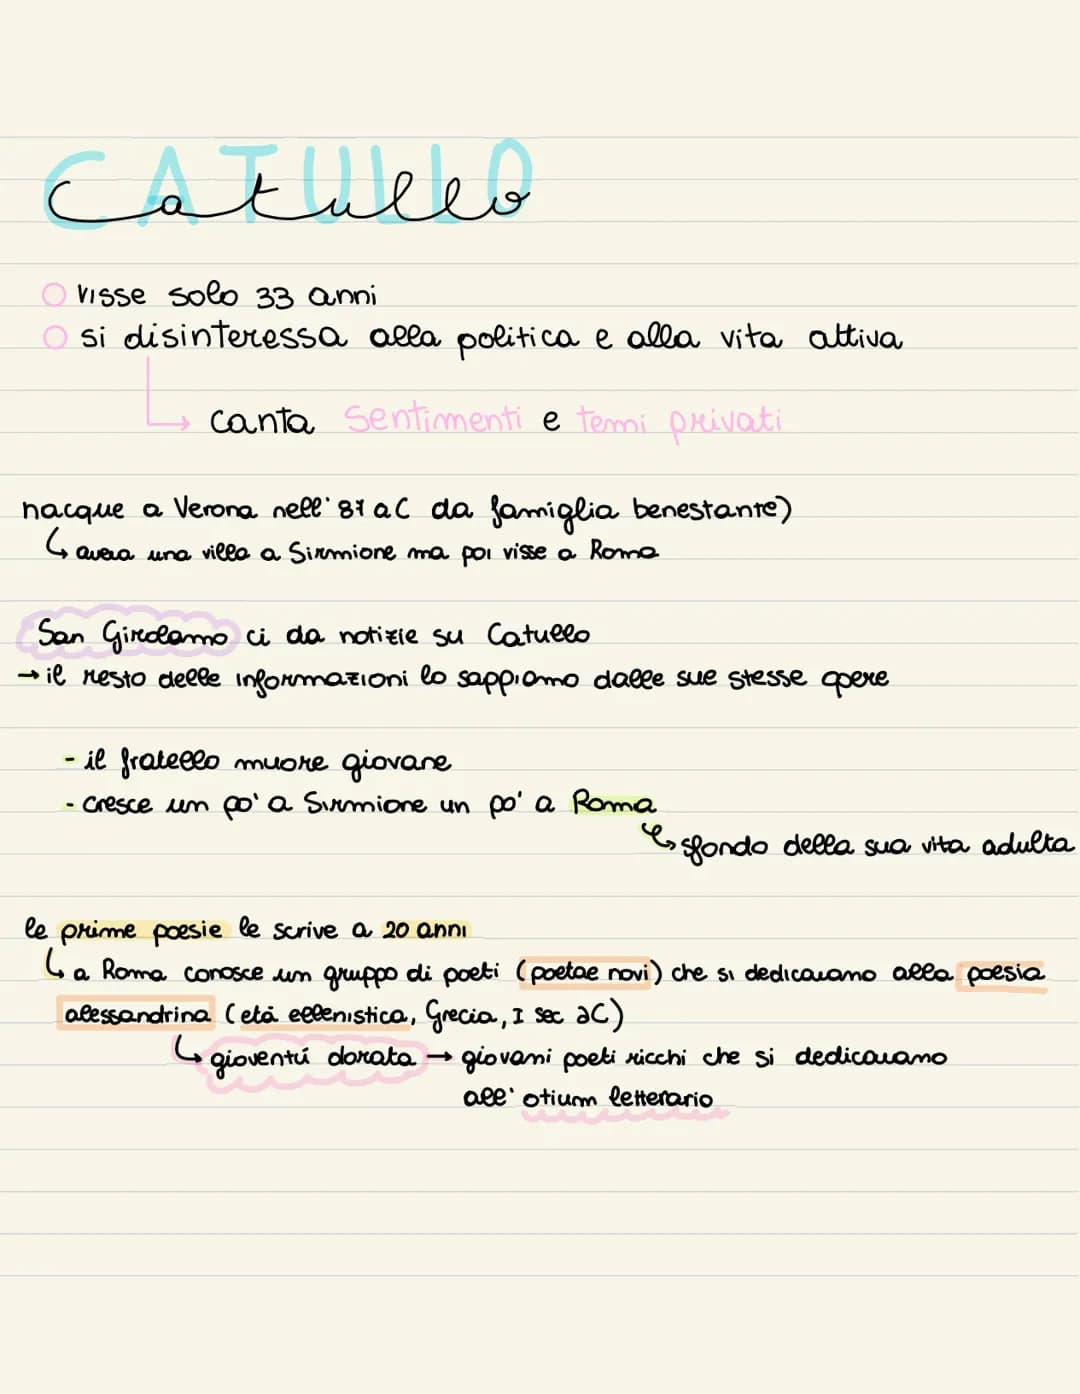 CATULLO
Catullo
visse solo 33 anni
si disinteressa alla politica e alla vita attiva
canta sentimenti e temi privati
nacque a Verona nell'87 aC da famiglia benestante)
↳ aveva una villa a Sirmione ma poi visse a Roma
San Girolamo ci da notizie su Catullo
→ il resto delle informazioni lo sappiamo dalle sue stesse opere
- il fratello muore giovane
- cresce un po' a Sirmione un po' a Roma
↳ sfondo della sua vita adulta
le prime poesie le scrive a 20 anni
↳ a Roma conosce un gruppo di poeti (poetae novi) che si dedicavamo alla poesia
alessandrina (etá ellenistica, Grecia, I sec aC)
↳ gioventú dorata → giovani poeti ricchi che si dedicavamo
all' otium letterario